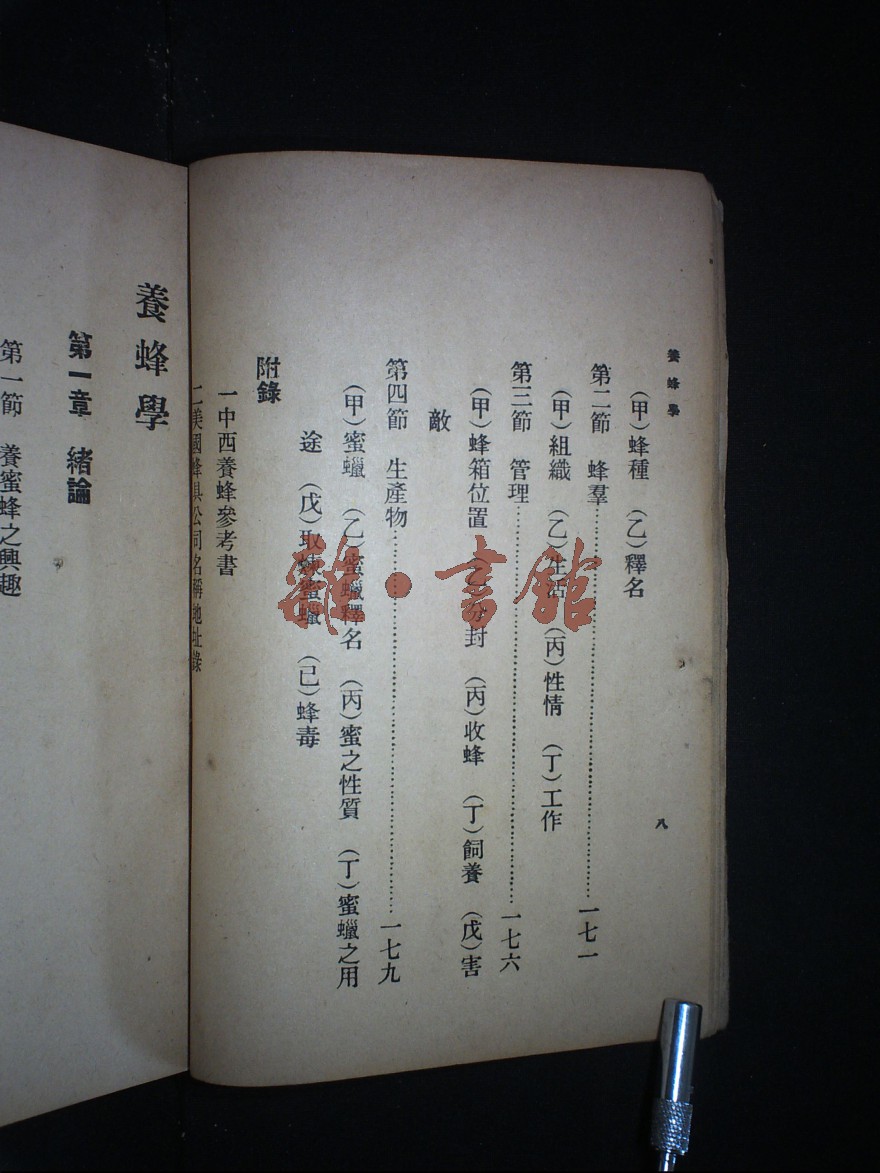 養蜂學
八
(甲)蜂種 (乙)釋名
第二節 蜂羣……一七一
(甲)組織 (乙)生活 (丙)性情 (丁)工作
第三節 管理……一七六
(甲)蜂箱位置 (乙)分封 (丙)收蜂 (丁)飼養 (戊)害
敵
第四節 生產物……一七九
(甲)蜜蠟 (乙)蜜蠟釋名 (丙)蜜之性質 (丁)蜜蠟之用
途 (戊)取煉蜜蠟 (已)蜂毒
附錄
一中西養蜂參考書
二美國蜂具公司名稱地址錄
養蜂學
第一章 緒論
第一節 養蜜蜂之興趣
雜·書館